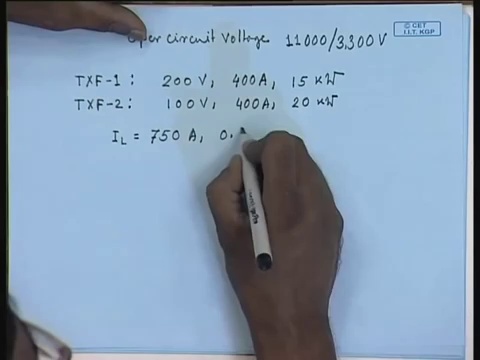 Open circuit Voltage 11000/3,300 V
© CET
I.I.T. KGP
TXF-1: 200 V, 400A, 15 KW
TXF-2: 100 V, 400A, 20 KW
I_L = 750 A, 0.